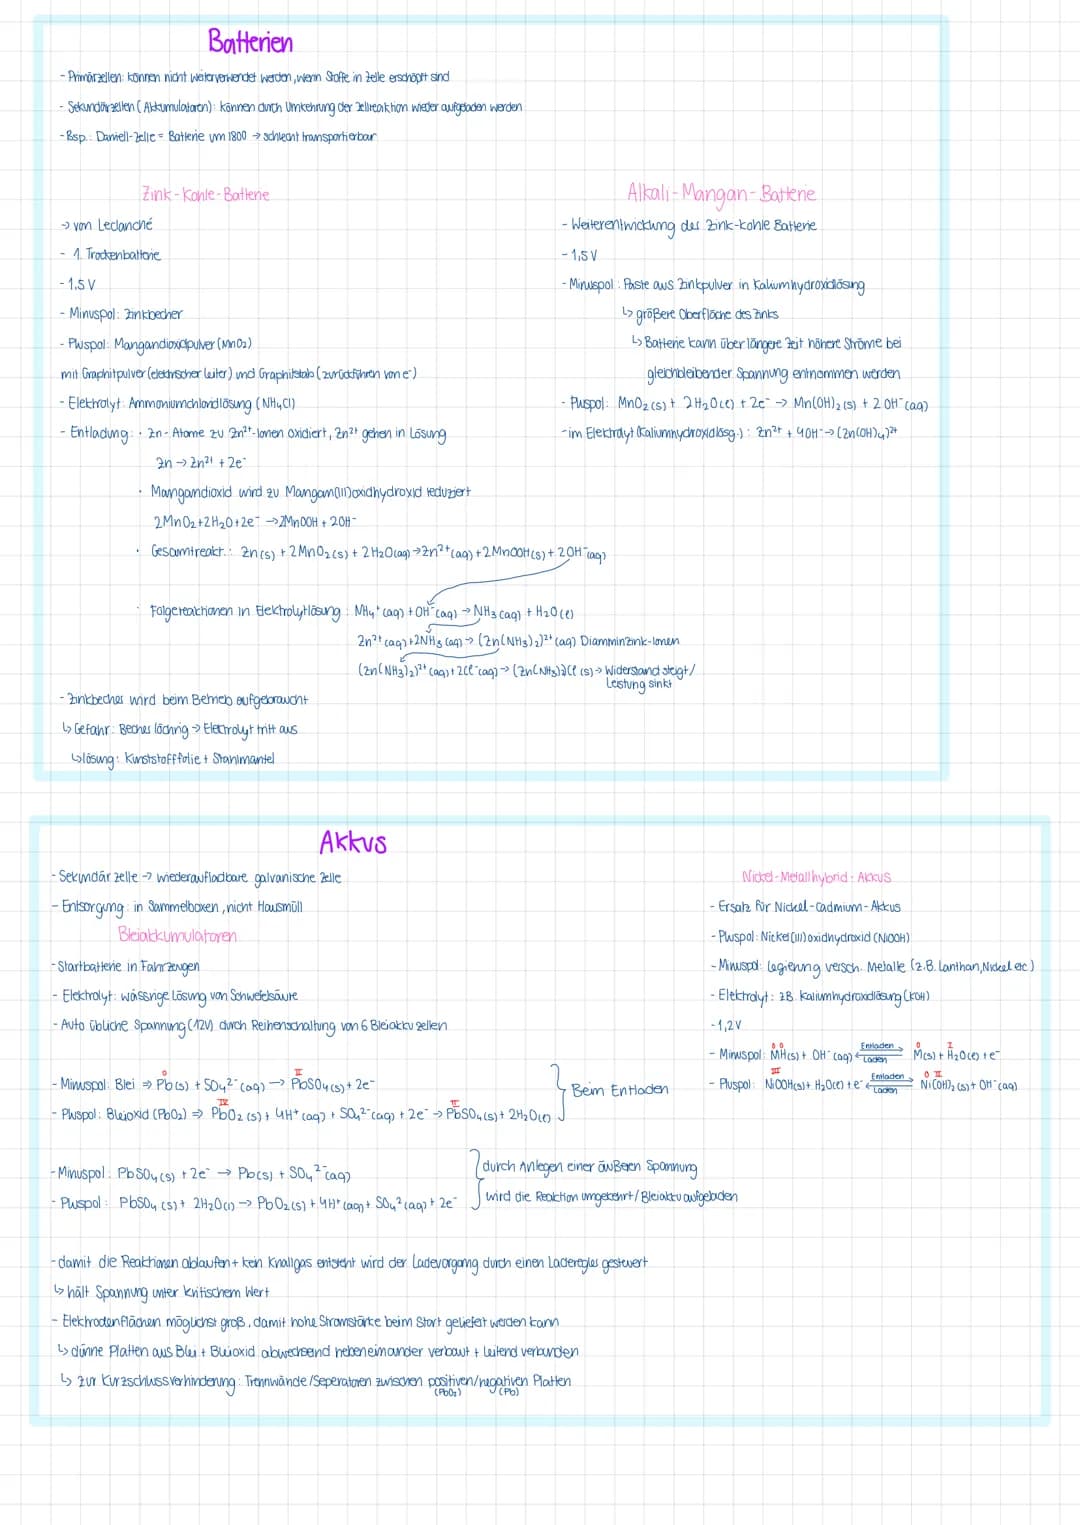 Batterien
- Primärzellen: können nicht weiterverwendet werden, wenn Stoffe in Zelle erschöpft sind
- Sekundärzellen (Akkumulatoren): können durch Umkehrung der Zellreaktion wieder aufgeladen werden
- Bsp.: Daniell-Zelle = Batterie um 1800 → schlecht transportierbar
Zink-Kohle-Batterie
→ von Leclanché
- 1. Trockenbatterie
- 1,5 V
- Minuspol: Zinkbecher
- Pluspol: Mangandioxidpulver (MnO₂)
mit Graphitpulver (elektrischer Leiter) und Graphitstab (zurückführen von e⁻)
- Elektrolyt: Ammoniumchloridlösung (NH₄Cl)
- Entladung: · Zn-Atome zu Zn²⁺-Ionen oxidiert, Zn²⁺ gehen in Lösung
Zn → Zn²⁺ + 2e⁻
· Mangandioxid wird zu Mangan(III)oxidhydroxid reduziert
2MnO₂+2H₂O+2e⁻ → 2MnOOH + 2OH⁻
· Gesamtreakt.: Zn(s) + 2MnO₂(s) + 2H₂O(aq) → Zn²⁺(aq) + 2MnOOH(s) + 2OH⁻(aq)
· Folgereaktionen in Elektrolytlösung: NH₄⁺(aq) + OH⁻(aq) → NH₃(aq) + H₂O(l)
Zn²⁺(aq)+2NH₃(aq) → (Zn(NH₃)₂)²⁺(aq) Diamminzink-Ionen
(Zn(NH₃)₂)²⁺(aq)+2Cl⁻(aq) → (Zn(NH₃)₂)Cl(s) → Widerstand steigt/
Leistung sinkt
- Zinkbecher wird beim Betrieb aufgebraucht
↳ Gefahr: Becher löchrig → Elektrolyt tritt aus
↳ lösung: Kunststofffolie + Stahlmantel
Alkali-Mangan-Batterie
- Weiterentwicklung der Zink-Kohle Batterie
- 1,5 V
- Minuspol: Paste aus Zinkpulver in Kaliumhydroxidlösung
↳ größere Oberfläche des Zinks
↳ Batterie kann über längere Zeit höhere Ströme bei
gleichbleibender Spannung entnommen werden
- Pluspol: MnO₂(s) + 2H₂O(l) + 2e⁻ → Mn(OH)₂(s) + 2OH⁻(aq)
- im Elektrolyt (Kaliumhydroxidlösg.): Zn²⁺ + 4OH⁻ → (Zn(OH)₄)²⁺
Akkus
- Sekundärzelle → wiederaufladbare galvanische Zelle
- Entsorgung: in Sammelboxen, nicht Hausmüll
Bleiakkumulatoren
- Startbatterie in Fahrzeugen
- Elektrolyt: wässrige Lösung von Schwefelsäure
- Auto übliche Spannung (12V) durch Reihenschaltung von 6 Bleiakkuzellen
0 II
- Minuspol: Blei ⇒ Pb(s) + SO₄²⁻(aq) → PbSO₄(s) + 2e⁻
IV II
- Pluspol: Bleioxid (PbO₂) ⇒ PbO₂(s) + 4H⁺(aq) + SO₄²⁻(aq) + 2e⁻ → PbSO₄(s) + 2H₂O(l)
Beim Entladen
- Minuspol: PbSO₄(s) + 2e⁻ → Pb(s) + SO₄²⁻(aq)
- Pluspol: PbSO₄(s) + 2H₂O(l) → PbO₂(s) + 4H⁺(aq) + SO₄²⁻(aq) + 2e⁻
durch Anlegen einer äußeren Spannung
wird die Reaktion umgekehrt/Bleiakku aufgeladen
- damit die Reaktionen ablaufen + kein Knallgas entsteht wird der Ladevorgang durch einen Laderegler gesteuert
↳ hält Spannung unter kritischem Wert
- Elektrodenflächen möglichst groß, damit hohe Stromstärke beim Start geliefert werden kann
↳ dünne Platten aus Blei + Bleioxid abwechselnd nebeneinander verbaut + leitend verbunden
↳ zur Kurzschlussverhinderung: Trennwände/Seperatoren zwischen positiven/negativen Platten
(PbO₂) (Pb)
Nickel-Metallhybrid-Akkus
- Ersatz für Nickel-Cadmium-Akkus
- Pluspol: Nickel(III)oxidhydroxid (NiOOH)
- Minuspol: Legierung versch. Metalle (z.B. Lanthan, Nickel etc.)
- Elektrolyt: z.B. Kaliumhydroxidlösung (KOH)
- 1,2V
0 0 Entladen 0 I
- Minuspol: MH(s) + OH⁻(aq) ⇌ M(s) + H₂O(l) + e⁻
Laden
III Entladen 0 II
- Pluspol: NiOOH(s) + H₂O(l) + e⁻ ⇌ Ni(OH)₂(s) + OH⁻(aq)
Laden